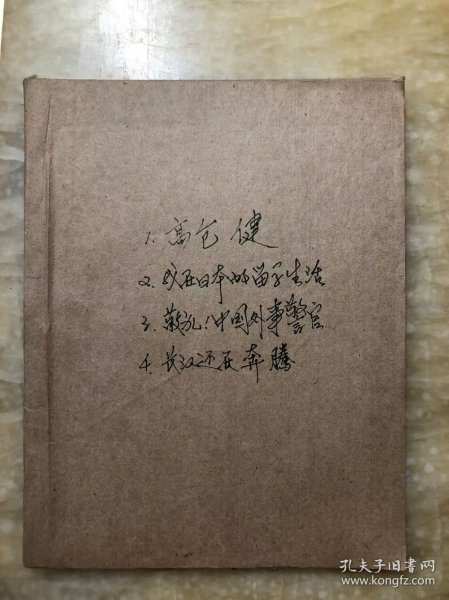 1. 高仓健
2. 我在日本的留学生活
3. 敬礼!中国外事警官
4. 长江还在奔腾
孔夫子旧书网
www.kongfz.com